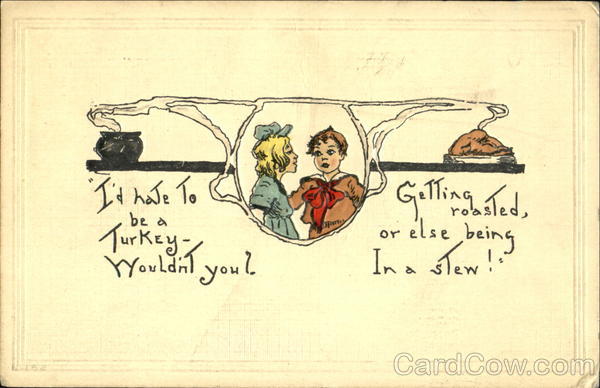 "I'd hate to
be a
Turkey-
Wouldn't you?
Getting
roasted,
or else being
In a stew!"
CardCow.com